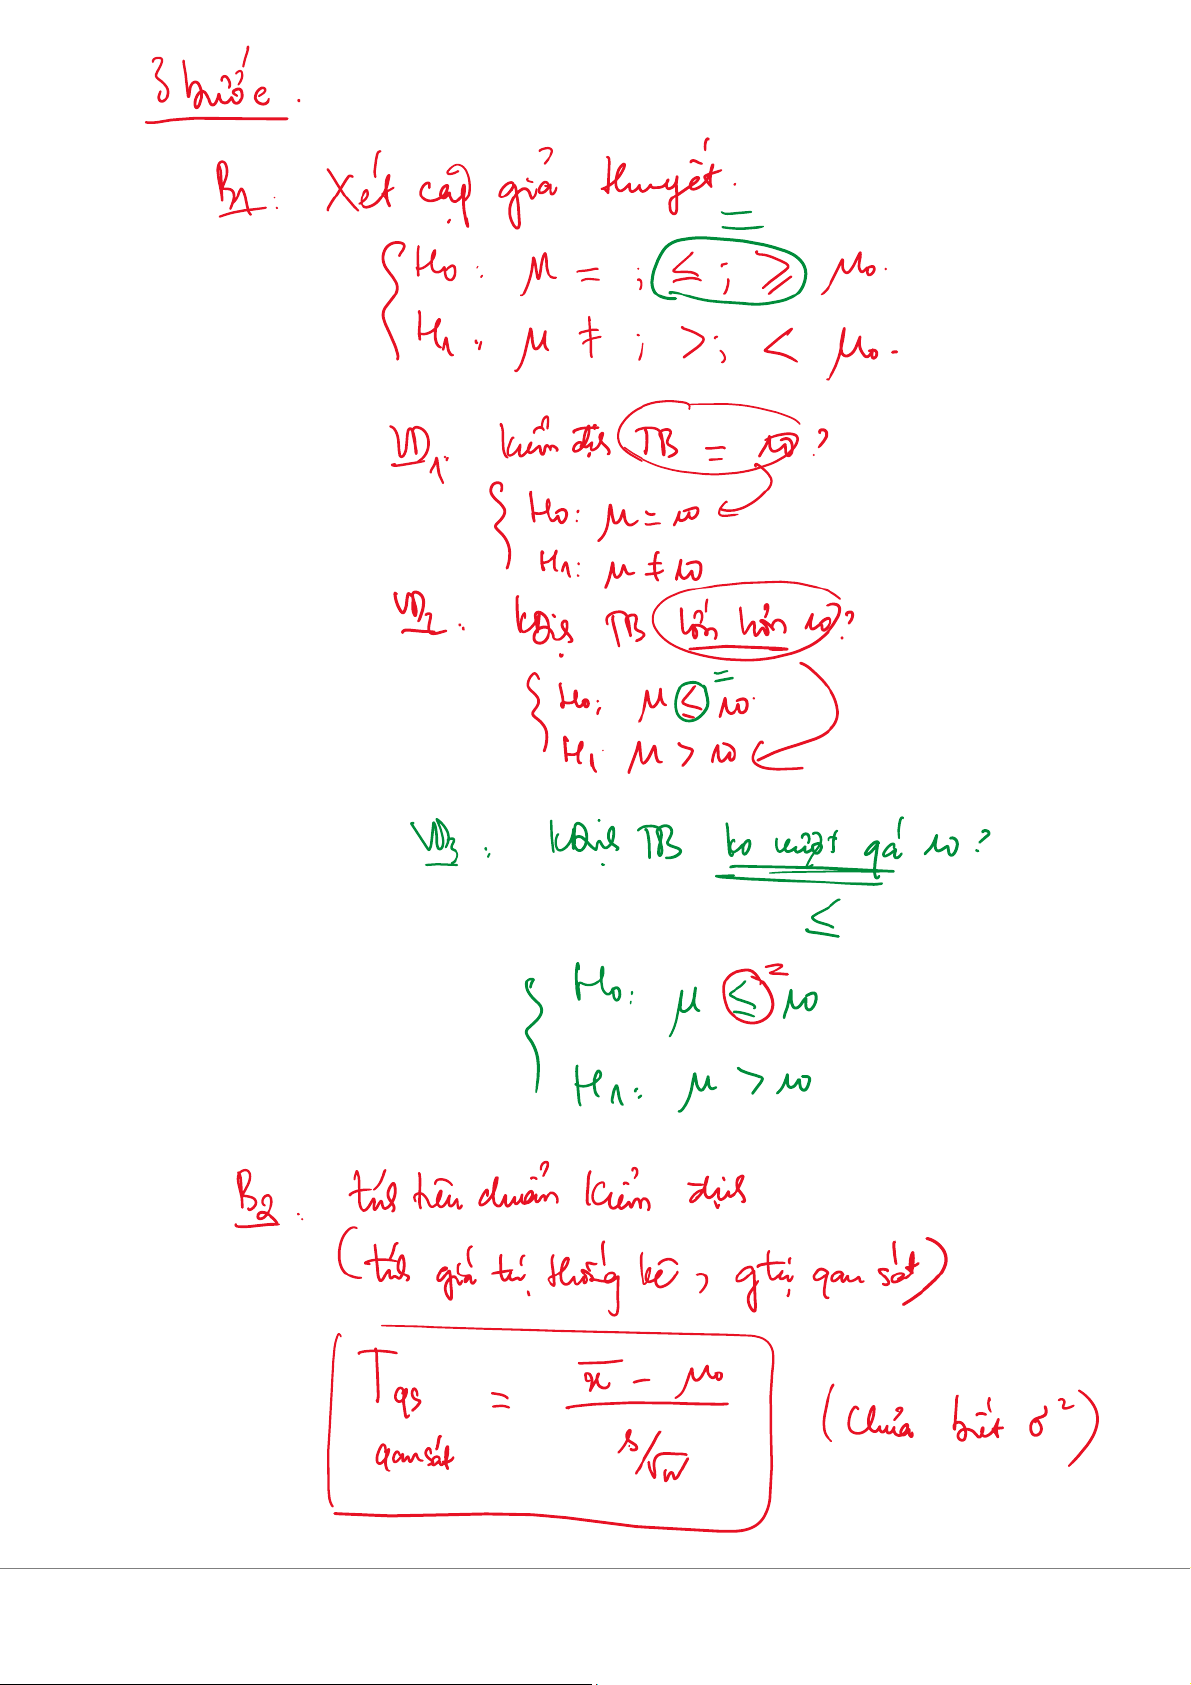 3 bước.
B1: Xét cặp giả thuyết.
=
H0: μ = ; ≤ ; ≥ μ0.
H1: μ ≠ ; > ; < μ0.
VD1: kiểm định TB = 10?
H0: μ = 10
H1: μ ≠ 10
VD2: kđịnh TB lớn hơn 10?
=
H0: μ ≤ 10.
H1: μ > 10
VD3: kđịnh TB ko vượt quá 10?
≤
=
H0: μ ≤ 10
H1: μ > 10
B2: tính tiêu chuẩn kiểm định
(tính giá trị thống kê, gtrị quan sát)
Tqs = (x̄ - μ0) / (s/√n) (chưa biết σ²)
quan sát